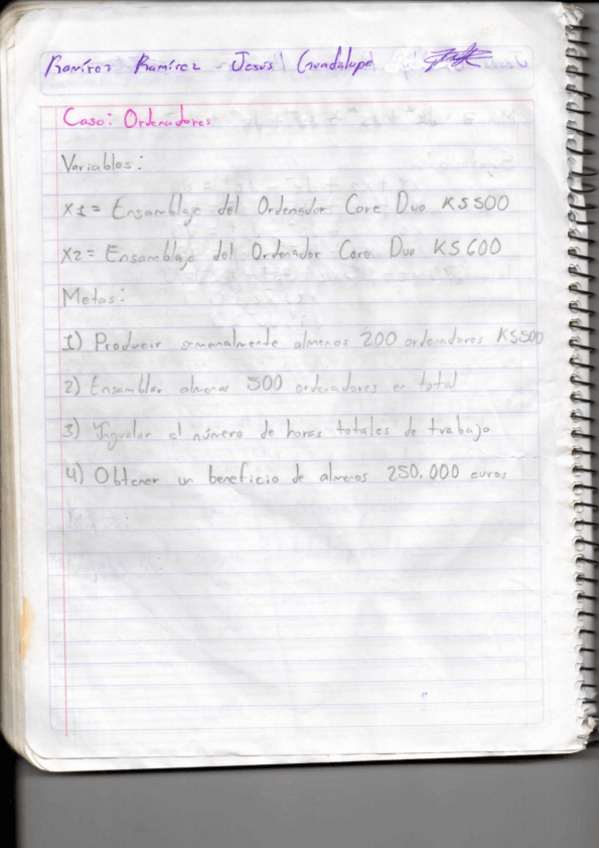 Ramírez Ramírez Jesús Guadalupe
Caso: Ordenadores
Variables:
X1 = Ensamblaje del Ordenador Core Duo KS500
X2 = Ensamblaje del Ordenador Core Duo KS600
Metas:
1) Producir semanalmente almenos 200 ordenadores KS500
2) Ensamblar almenos 500 ordenadores en total
3) Yngualar el número de horas totales de trabajo
4) Obtener un beneficio de almenos 250,000 euros